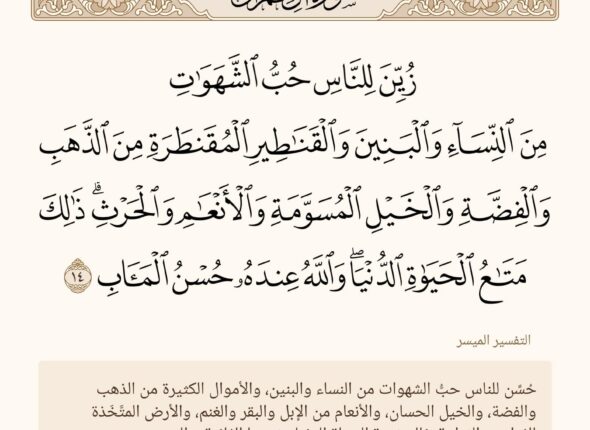 سورة آل عمران
زُيِّنَ لِلنَّاسِ حُبُّ ٱلشَّهَوَٰتِ
مِنَ ٱلنِّسَآءِ وَٱلْبَنِينَ وَٱلْقَنَٰطِيرِ ٱلْمُقَنطَرَةِ مِنَ ٱلذَّهَبِ
وَٱلْفِضَّةِ وَٱلْخَيْلِ ٱلْمُسَوَّمَةِ وَٱلْأَنْعَٰمِ وَٱلْحَرْثِ ۗ ذَٰلِكَ
مَتَٰعُ ٱلْحَيَوٰةِ ٱلدُّنْيَا ۖ وَٱللَّهُ عِندَهُۥ حُسْنُ ٱلْمَـَٔابِ ١٤
التفسير الميسر
حُسِّن للناس حبُّ الشهوات من النساء والبنين، والأموال الكثيرة من الذهب
والفضة، والخيل الحسان، والأنعام من الإبل والبقر والغنم، والأرض المتَّخَذة